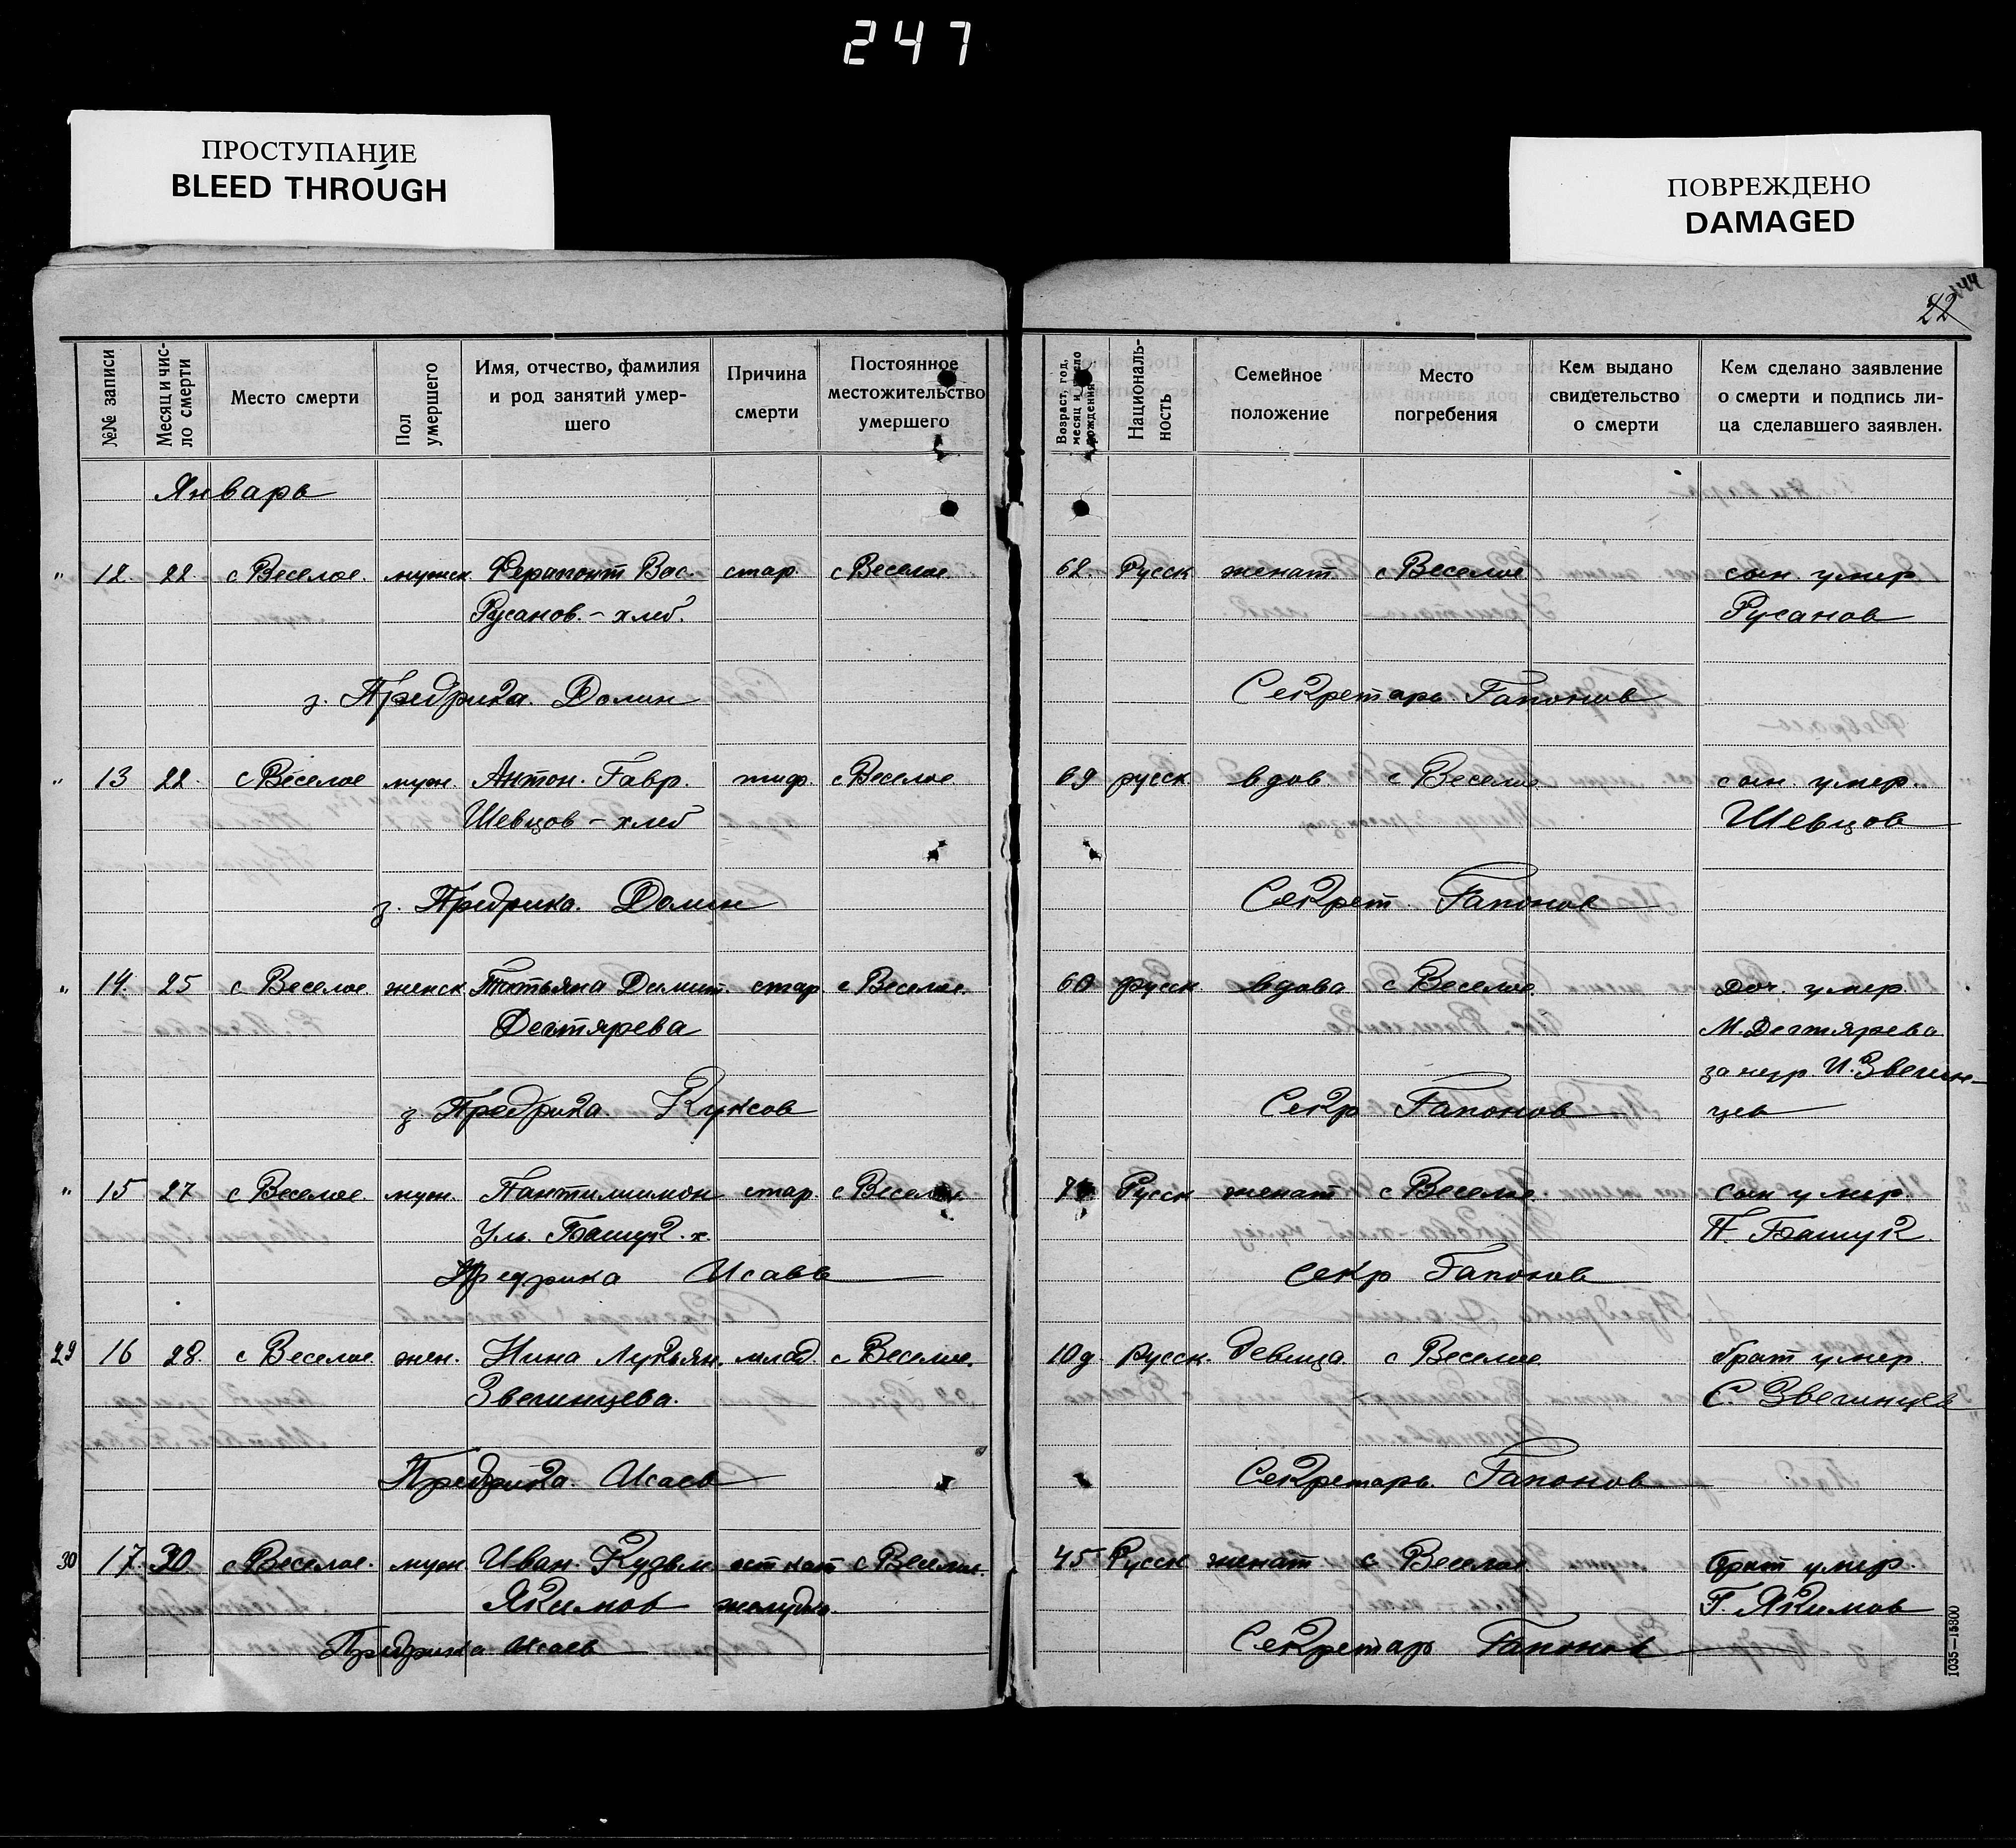 247
ПРОСТУПАНИЕ
BLEED THROUGH
ПОВРЕЖДЕНО
DAMAGED
22
№№ записи
Месяц и число смерти
Место смерти
Пол умершего
Имя, отчество, фамилия
и род занятий умер-
шего
Причина
смерти
Постоянное
местожительство
умершего
Возраст, год,
месяц и число
рождения
Националь-
ность
Семейное
положение
Место
погребения
Кем выдано
свидетельство
о смерти
Кем сделано заявление
о смерти и подпись ли-
ца сделавшего заявлен.
Январь
" 12. 22. с Веселое. мужск. Ферапонт Вас. стар. с Веселое. 62. Русск женат. с Веселое. сын. умер.
Русанов. – хлеб. Русанов
з. Предрика. Долин Секретарь. Гапонов
" 13 22. с Веселое муж. Антон. Гавр. тиф. с Веселое. 69 русск вдов. с Веселое. сын. умер.
Шевцов – хлеб Шевцов
з. Предрика. Долин Секрет. Гапонов
" 14. 25 с Веселое. женск Татьяна Димит. стар. с Веселое. 60 русск вдова с Веселое. доч. умер.
Дегтярева М. Дегтярева
за негр. И. Звегин-
з. Предрика. Куксов Секр Гапонов цев
" 15 27 с Веселое. муж. Пантилимон стар. с Веселое. Русск женат с Веселое. сын умер.
Ул. Башук. х. П. Башук.
Предрика Исаев Секр Гапонов
29 16 28. с Веселое жен. Нина Лукьян. млад. с Веселое. 10 д. Русск. девица. с Веселое. брат умер.
Звегинцева. С. Звегинцев
Предрика. Исаев Секретарь. Гапонов
30 17. 30. с Веселое. муж. Иван. Кузьм. ост кат с Веселое. 45 Русск женат с Веселое. брат умер.
Якимов желудка. Г. Якимов
Предрика Исаев Секретар Гапонов
1035—15800